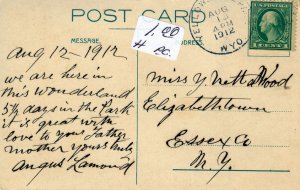 POST CARD
1.00
MESSAGE
AUG
13
1912
WYO.
1 CENT 1
Aug 12 1912
we are here in
this wonderland
5½ days in the Park
it is great with
love to your Father
mother yours truly
Angus Lamond
Miss Y Netta Wood
Elizabethtown
Essex Co
N.Y.